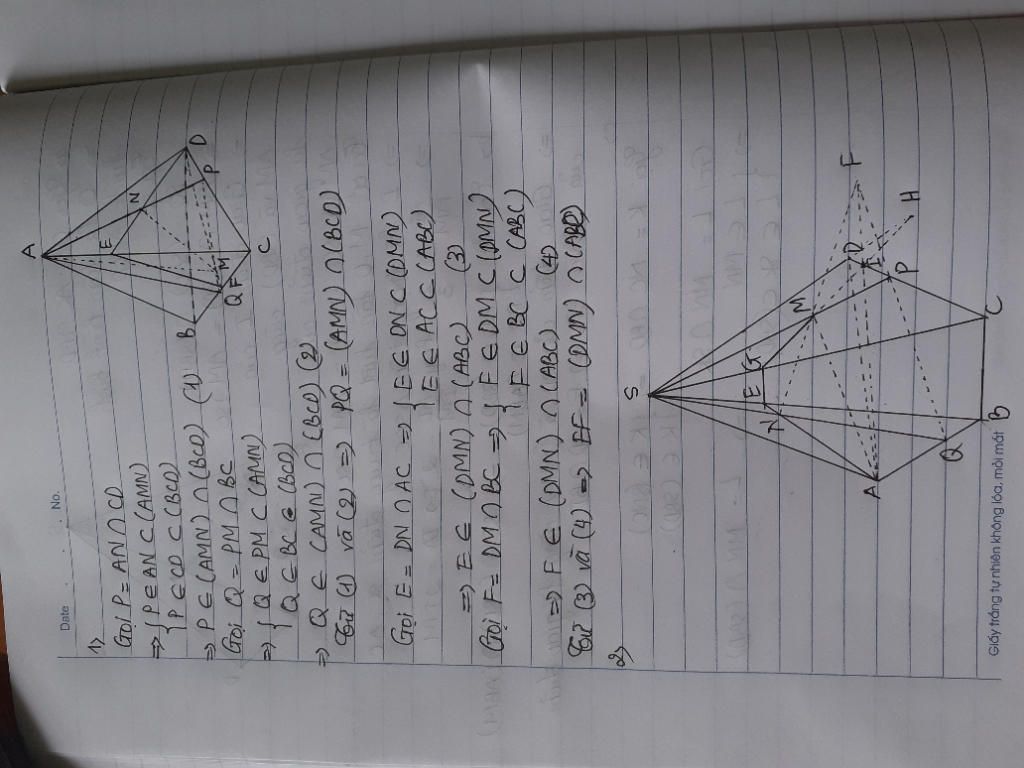 Date No.
1)
Gọi P = AN ∩ CD
=> { P ∈ AN ⊂ (AMN)
P ∈ CD ⊂ (BCD)
=> P ∈ (AMN) ∩ (BCD) (1)
Gọi Q = PM ∩ BC
=> { Q ∈ PM ⊂ (AMN)
Q ∈ BC ⊂ (BCD)
=> Q ∈ (AMN) ∩ (BCD) (2)
Từ (1) và (2) => PQ = (AMN) ∩ (BCD)
A
E
N
B
D
P
M
Q
F
C
Gọi E = DN ∩ AC => { E ∈ DN ⊂ (DMN)
E ∈ AC ⊂ (ABC)
=> E ∈ (DMN) ∩ (ABC) (3)
Gọi F = DM ∩ BC => { F ∈ DM ⊂ (DMN)
F ∈ BC ⊂ (ABC)
=> F ∈ (DMN) ∩ (ABC) (4)
Từ (3) và (4) => EF = (DMN) ∩ (ABC)
2)
S
N
E
G
M
A
D
F
I
P
H
Q
B
C
Giấy trắng tự nhiên không lóa, mỏi mắt